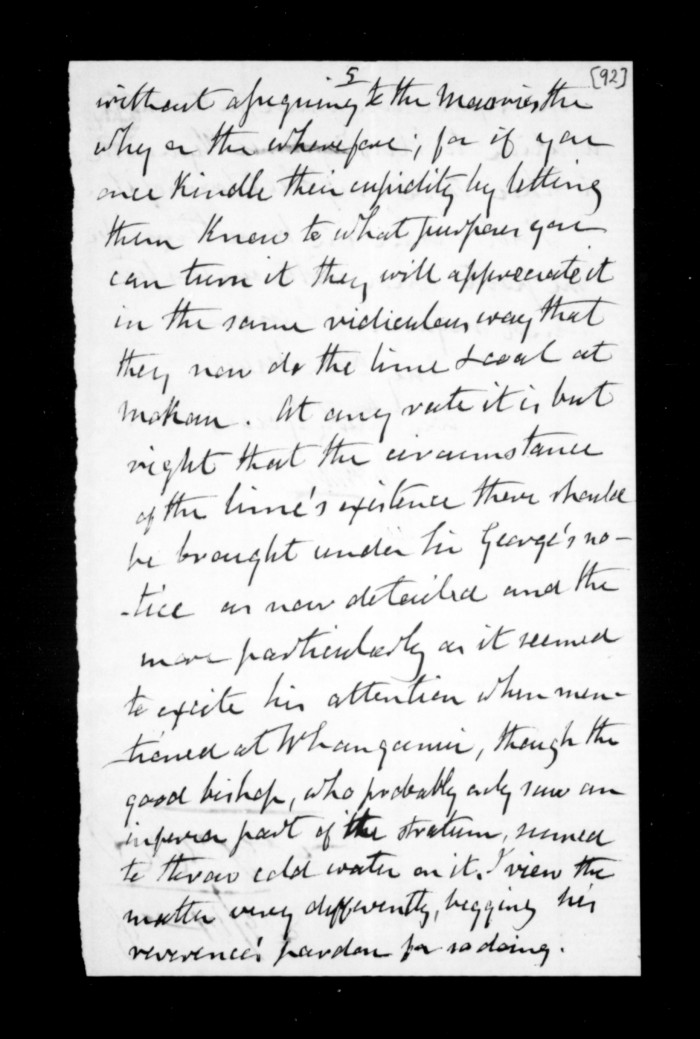 5
[92]
without assigning to the Maories the
why or the wherefore; for if you
once Kindle their cupidity by letting
them Know to what purposes you
can turn it they will appreciate it
in the same ridiculous way that
they now do the lime & coal at
Mokau. At any rate it is but
right that the circumstance
of the lime's existence there should
be brought under Sir George's no-
-tice as now detailed and the
more particularly as it seemed
to excite his attention when men-
-tioned at Whanganui, though the
good bishop, who probably only saw an
inferior part of the stratum, seemed
to throw cold water on it. I view the
matter very differently, begging his
reverence's pardon for so doing.